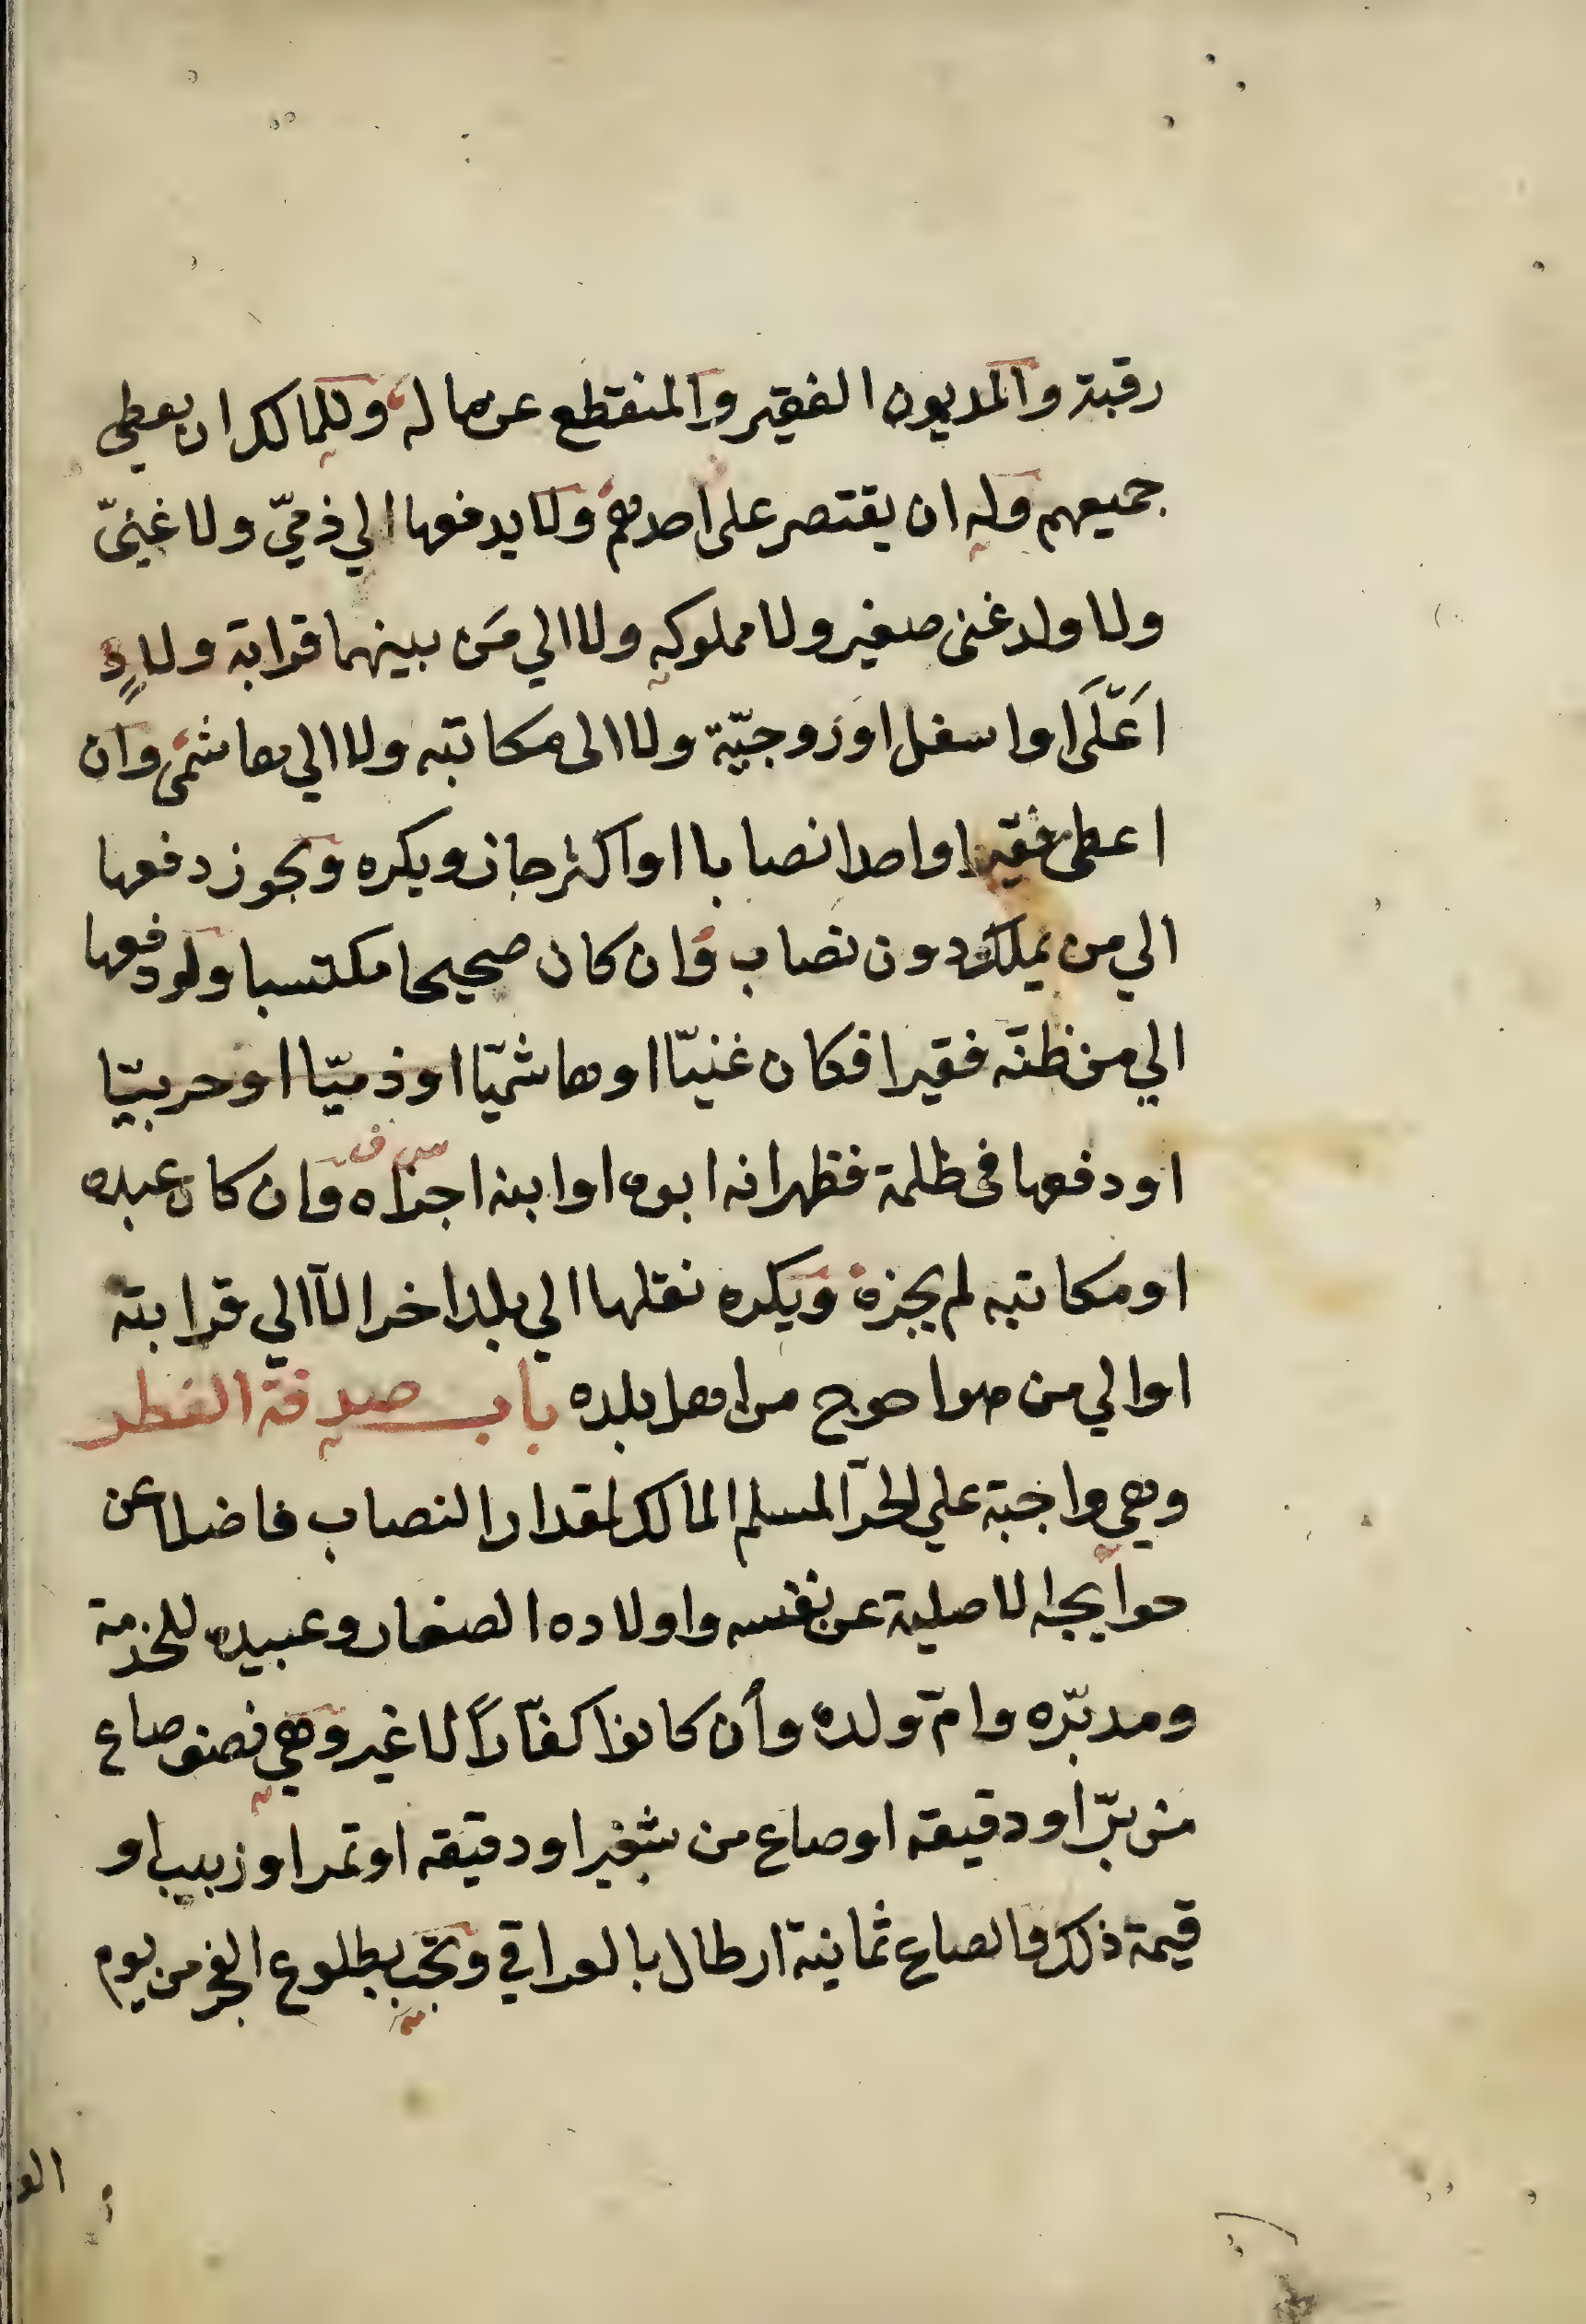 رقبة والمديون الفقير والمنقطع عن ماله وللمالك ان يعطي
جميعهم وله ان يقتصر على احدهم ولا يدفعها الي ذميّ ولا غنيّ
ولا ولد غنى صغير ولا مملوكه ولا الي مَن بينهما قرابة ولادٍ
اَعّلَى او اسفل او زوجيّة ولا الى مكاتبه ولا الي هاشمى وان
اعطى فقيرا واحدا نصابا او اكثر جاز ويكره ويجوز دفعها
الي من يملك دون نصاب وان كان صحيحا مكتسبا ولو دفعها
الي من ظنّه فقيرا فكان غنيّا او هاشميّا او ذميّا او حربيّا
او دفعها فى ظلمة فظهر انه ابوه او ابنه اجزاه وان كان عبده
او مكاتبه لم يجزه ويكره نقلها الي بلد اخر الّا الي قرابته
او الي من هو احوج من اهل بلده باب صدقة الفطر
وهي واجبة علي الحرّ المسلم المالك لمقدار النصاب فاضلا عن
حوايجه الاصلية عن نفسه واولاده الصغار وعبيده للخدمة
ومدبّره وامّ ولده وأن كانوا كفّاراً لا غير وهي نصف صاع
من برّ او دقيقه او صاع من شعير او دقيقه او تمر او زبيب او
قيمة ذلك والصاع ثمانية ارطال بالعراقي وتجب بطلوع الفجر من يوم